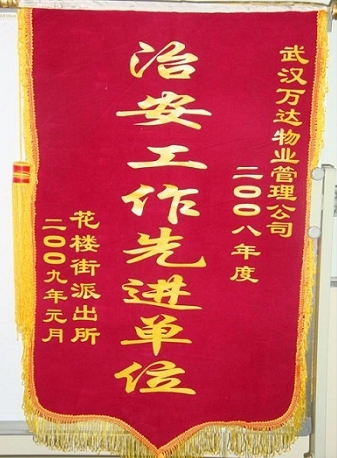 武汉万达物业管理公司
二〇〇八年度
治安工作先进单位
花楼街派出所
二〇〇九年元月